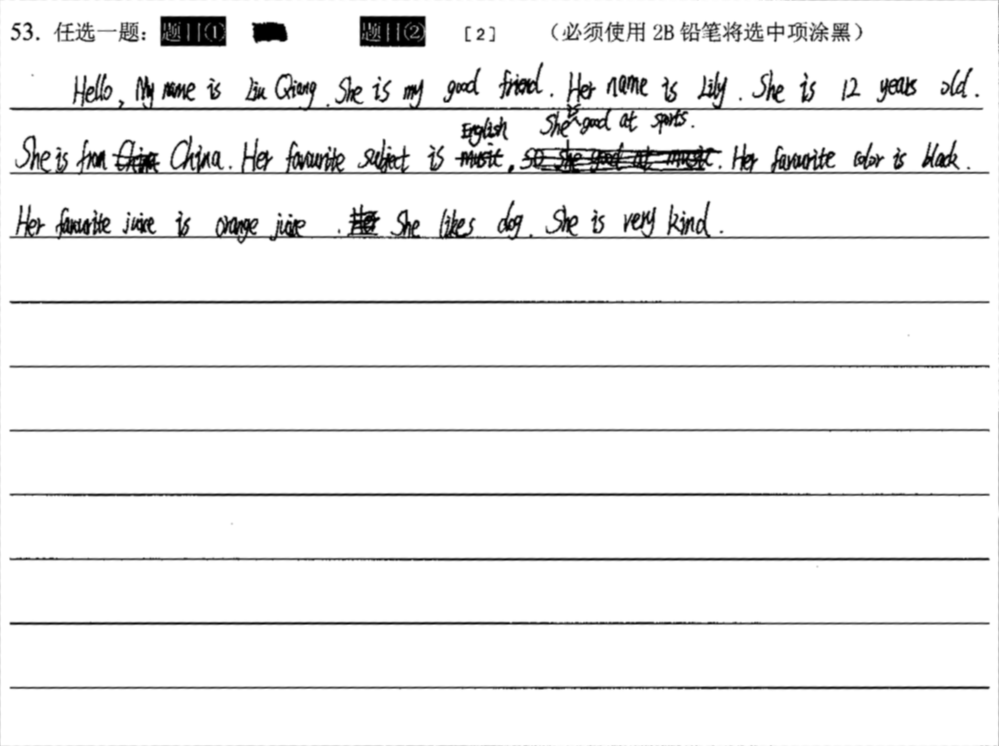 53. 任选一题: 题目① 题目② [2] (必须使用 2B 铅笔将选中项涂黑)
Hello, My name is Liu Qiang. She is my good friend. Her name is Lily. She is 12 years old.
English She is good at sports.
She is from China China. Her favourite subject is music, so she good at music. Her favourite color is black.
Her favourite juice is orange juice. Her She likes dog. She is very kind.